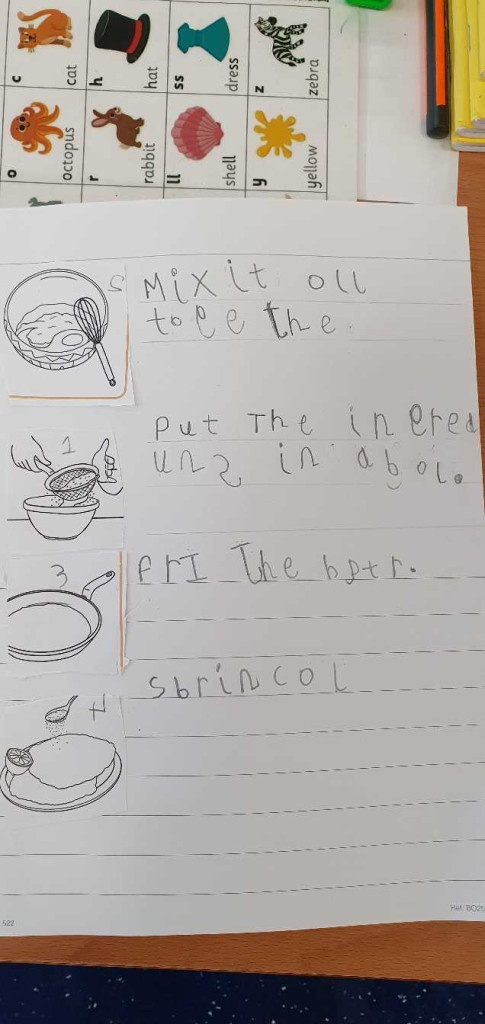 c
cat
h
hat
ss
dress
z
zebra
o
octopus
r
rabbit
ll
shell
y
yellow
2
Mix it oll
togethe
1
put The ingred
uns in a bol.
3
frI The batr.
4
sbrincol
522